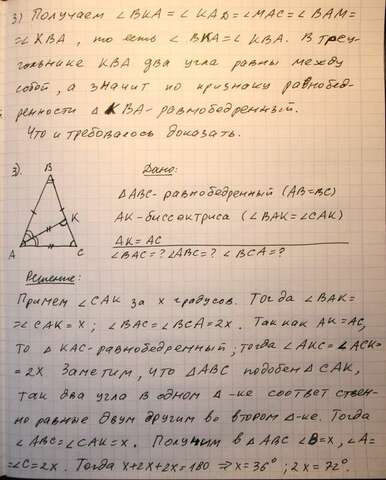 3) Получаем ∠BKA = ∠KAD = ∠MAC = ∠BAM =
= ∠KBA, то есть ∠BKA = ∠KBA. В треу-
гольнике KBA два угла равны между
собой, а значит по признаку равнобед-
ренности △KBA - равнобедренный.
Что и требовалось доказать.
3).
B
K
A
C
Дано:
△ABC - равнобедренный (AB=BC)
AK - биссектриса (∠BAK=∠CAK)
AK = AC
∠BAC=? ∠ABC=? ∠BCA=?
Решение:
Примем ∠CAK за x градусов. Тогда ∠BAK=
= ∠CAK = x; ∠BAC = ∠BCA = 2x. Так как AK = AC,
то △KAC - равнобедренный; тогда ∠AKC = ∠ACK =
= 2x Заметим, что △ABC подобен △CAK,
так два угла в одном △-ке соответствен-
но равные двум другим во втором △-ке. Тогда
∠ABC = ∠CAK = x. Получим в △ABC ∠B = x, ∠A =
= ∠C = 2x. Тогда x+2x+2x=180 ⇒ x=36°; 2x=72°.